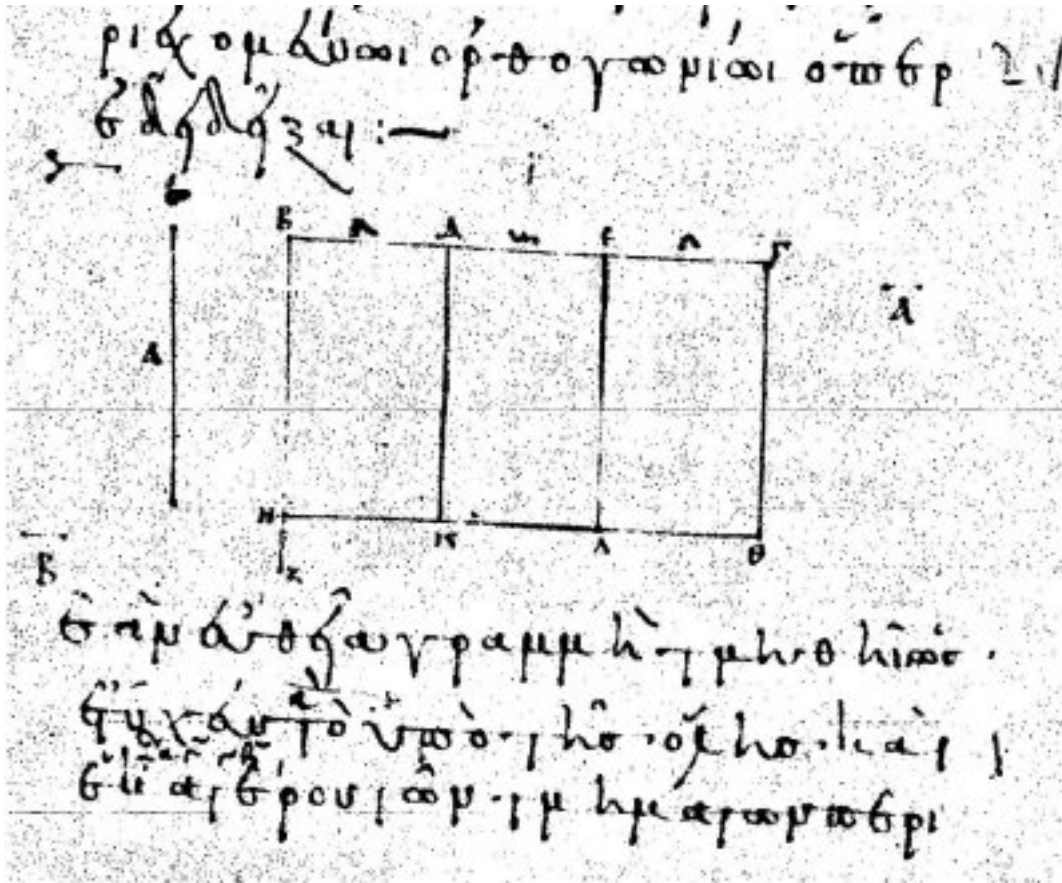 ριεχομένωι ὀρθογωνίωι ὅπερ
ἔδει δεῖξαι :—
Β Δ Ε Γ
Α
Α
Η Κ Λ Θ
Ζ
Β
ἐὰν εὐθεῖα γραμμὴ τμηθῆ ὡς
ἔτυχεν τὸ ὑπὸ τῆς ὅλης καὶ
ἑκατέρου τῶν τμημάτων περι